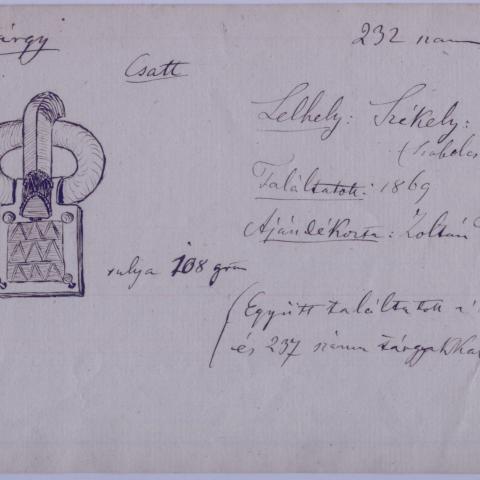 tárgy
232 szám
Csatt
Lelhely: Székely:
(Szabolcs
Találtatott: 1869
Ajándékozta: Zoltán
sulya 108 grm
(Együtt találtatott a
és 237 számu tárgyakkal